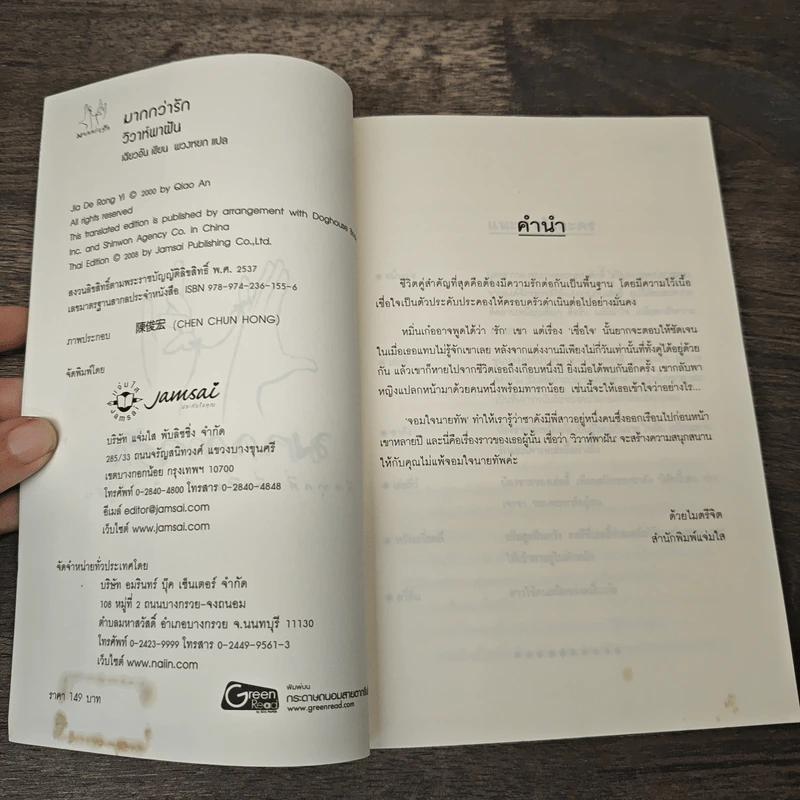 มากกว่ารัก
มากกว่ารัก
วิวาห์พาฝัน
เฉียวอัน เขียน พวงหยก แปล
Jia De Rong Yi © 2000 by Qiao An
All rights reserved
This translated edition is published by arrangement with Doghouse
Inc. and Shinwon Agency Co. in China
Thai Edition © 2008 by Jamsai Publishing Co.,Ltd.
สงวนลิขสิทธิ์ตามพระราชบัญญัติลิขสิทธิ์ พ.ศ. 2537
เลขมาตรฐานสากลประจำหนังสือ ISBN 978-974-236-155-6
ภาพประกอบ 陳俊宏 (CHEN CHUN HONG)
จัดพิมพ์โดย
แจ่มใส
Jamsai
Jamsai
บริษัท แจ่มใส พับลิชชิ่ง จำกัด
285/33 ถนนจรัญสนิทวงศ์ แขวงบางขุนศรี
เขตบางกอกน้อย กรุงเทพฯ 10700
โทรศัพท์ 0-2840-4800 โทรสาร 0-2840-4848
อีเมล์ editor@jamsai.com
เว็บไซต์ www.jamsai.com
จัดจำหน่ายทั่วประเทศโดย
บริษัท อมรินทร์ บุ๊ค เซ็นเตอร์ จำกัด
108 หมู่ที่ 2 ถนนบางกรวย-จงถนอม
ตำบลมหาสวัสดิ์ อำเภอบางกรวย จ.นนทบุรี 11130
โทรศัพท์ 0-2423-9999 โทรสาร 0-2449-9561-3
เว็บไซต์ www.naiin.com
ราคา 149 บาท
Green
Read
พิมพ์บน
กระดาษถนอมสายตากรีนรี้ด
www.greenread.com
คำนำ
ชีวิตคู่สำคัญที่สุดคือต้องมีความรักต่อกันเป็นพื้นฐาน โดยมีความไว้เนื้อ
เชื่อใจเป็นตัวประคับประคองให้ครอบครัวดำเนินต่อไปอย่างมั่นคง
หมิ่นเก๋ออาจพูดได้ว่า 'รัก' เขา แต่เรื่อง 'เชื่อใจ' นั้นยากจะตอบให้ชัดเจน
ในเมื่อเธอแทบไม่รู้จักเขาเลย หลังจากแต่งงานมีเพียงไม่กี่วันเท่านั้นที่ทั้งคู่ได้อยู่ด้วย
กัน แล้วเขาก็หายไปจากชีวิตเธอถึงเกือบหนึ่งปี ยิ่งเมื่อได้พบกันอีกครั้ง เขากลับพา
หญิงแปลกหน้ามาด้วยคนหนึ่งพร้อมทารกน้อย เช่นนี้จะให้เธอเข้าใจว่าอย่างไร...
'จอมใจนายทัพ' ทำให้เรารู้ว่าซาคังมีพี่สาวอยู่หนึ่งคนซึ่งออกเรือนไปก่อนหน้า
เขาหลายปี และนี่คือเรื่องราวของเธอผู้นั้น เชื่อว่า 'วิวาห์พาฝัน' จะสร้างความสนุกสนาน
ให้กับคุณไม่แพ้จอมใจนายทัพค่ะ
ด้วยไมตรีจิต
สำนักพิมพ์แจ่มใส